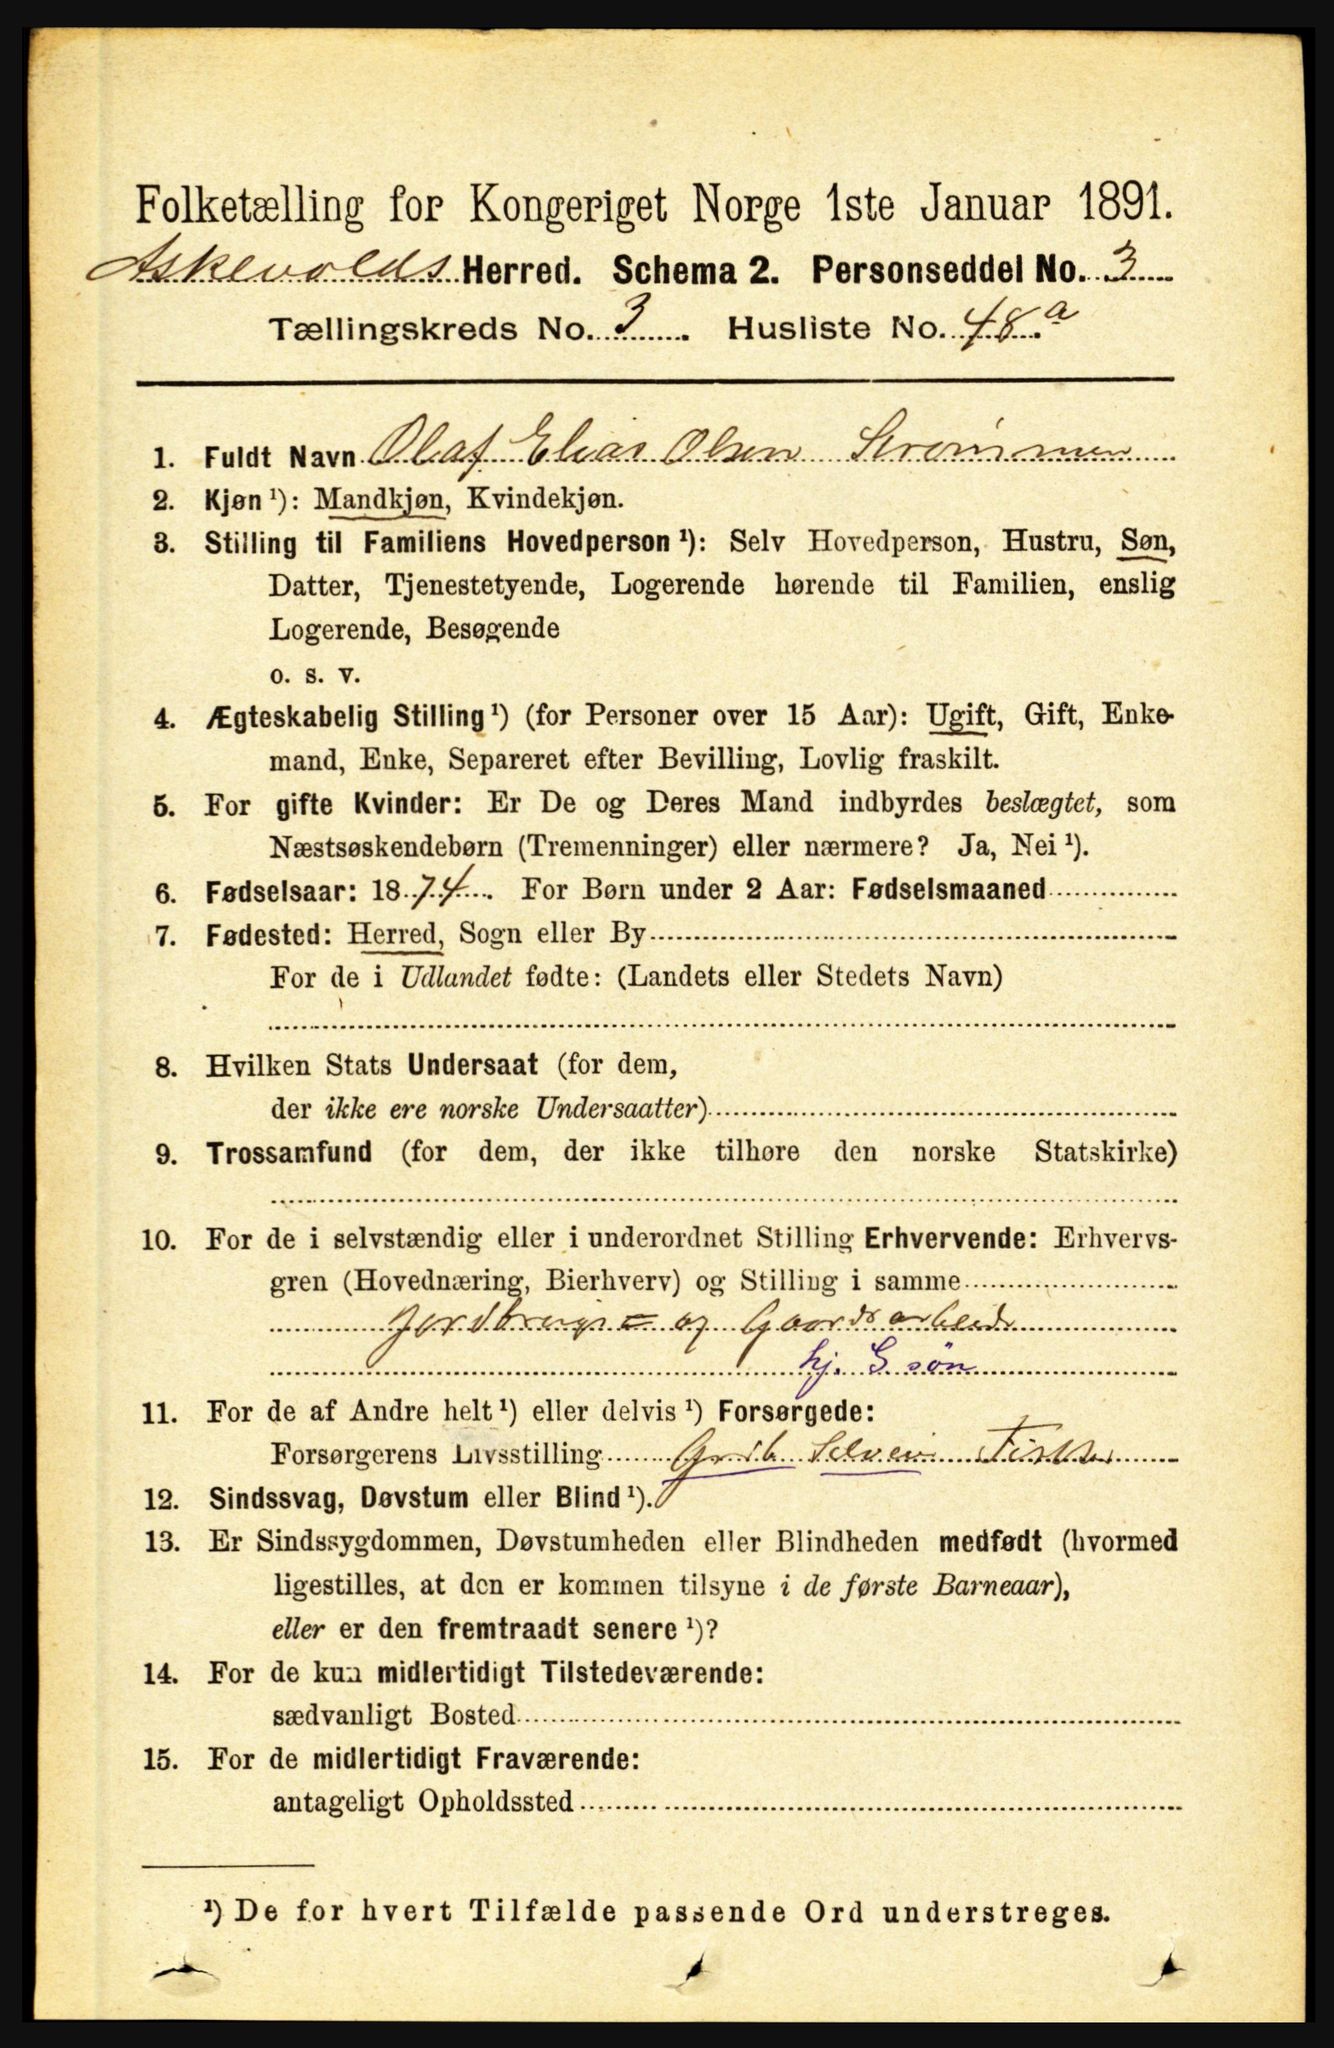 Folketælling for Kongeriget Norge 1ste Januar 1891.
Askevolds Herred. Schema 2. Personseddel No. 3
Tællingskreds No. 3. Husliste No. 48.a
1. Fuldt Navn Olaf Elias Olsen Strømmen
2. Kjøn ¹): Mandkjøn, Kvindekjøn.
3. Stilling til Familiens Hovedperson ¹): Selv Hovedperson, Hustru, Søn,
Datter, Tjenestetyende, Logerende hørende til Familien, enslig
Logerende, Besøgende
o. s. v.
4. Ægteskabelig Stilling ¹) (for Personer over 15 Aar): Ugift, Gift, Enke-
mand, Enke, Separeret efter Bevilling, Lovlig fraskilt.
5. For gifte Kvinder: Er De og Deres Mand indbyrdes beslægtet, som
Næstsøskendebørn (Tremenninger) eller nærmere? Ja, Nei ¹).
6. Fødselsaar: 1874. For Børn under 2 Aar: Fødselsmaaned
7. Fødested: Herred, Sogn eller By
For de i Udlandet fødte: (Landets eller Stedets Navn)
8. Hvilken Stats Undersaat (for dem,
der ikke ere norske Undersaatter)
9. Trossamfund (for dem, der ikke tilhøre den norske Statskirke)
10. For de i selvstændig eller i underordnet Stilling Erhvervende: Erhvervs-
gren (Hovednæring, Bierhverv) og Stilling i samme
Jordbrugs= og Gaardsarbeide
hj. G søn
11. For de af Andre helt ¹) eller delvis ¹) Forsørgede:
Forsørgerens Livsstilling Grdb. Selveier Fisker
12. Sindssvag, Døvstum eller Blind ¹).
13. Er Sindssygdommen, Døvstumheden eller Blindheden medfødt (hvormed
ligestilles, at den er kommen tilsyne i de første Barneaar),
eller er den fremtraadt senere ¹)?
14. For de kun midlertidigt Tilstedeværende:
sædvanligt Bosted
15. For de midlertidigt Fraværende:
antageligt Opholdssted
¹) De for hvert Tilfælde passende Ord understreges.